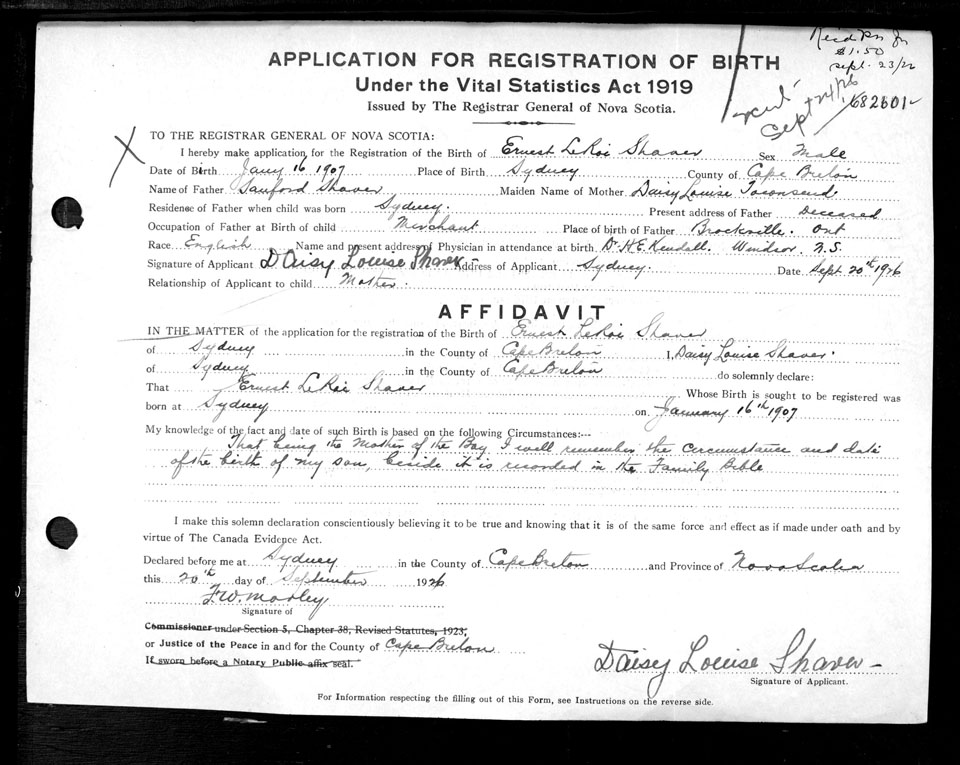 Recd
$1.50
Sept. 23/26
APPLICATION FOR REGISTRATION OF BIRTH
Under the Vital Statistics Act 1919
Issued by The Registrar General of Nova Scotia.
Sept 24/26
682601
TO THE REGISTRAR GENERAL OF NOVA SCOTIA:
I hereby make application for the Registration of the Birth of Ernest LeRoi Shaver Sex Male
Date of Birth Jany 16 1907 Place of Birth Sydney County of Cape Breton
Name of Father Sanford Shaver Maiden Name of Mother Daisy Louise Townsend
Residence of Father when child was born Sydney. Present address of Father Deceased
Occupation of Father at Birth of child Merchant Place of birth of Father Brockville. Ont
Race English Name and present address of Physician in attendance at birth Dr. H E Kendall. Windsor. N.S.
Signature of Applicant Daisy Louise Shaver - Address of Applicant Sydney. Date Sept 20th 1926
Relationship of Applicant to child Mother.
AFFIDAVIT
IN THE MATTER of the application for the registration of the Birth of Ernest LeRoi Shaver
of Sydney in the County of Cape Breton I, Daisy Louise Shaver.
of Sydney in the County of Cape Breton do solemnly declare:
That Ernest LeRoi Shaver Whose Birth is sought to be registered was
born at Sydney on January 16th 1907
My knowledge of the fact and date of such Birth is based on the following Circumstances:--
That being the Mother of the Boy, I well remember the circumstance and date
of the birth of my son, beside it is recorded in the Family Bible
I make this solemn declaration conscientiously believing it to be true and knowing that it is of the same force and effect as if made under oath and by
virtue of The Canada Evidence Act.
Declared before me at Sydney in the County of Cape Breton and Province of Nova Scotia
this 20th day of September 1926
F.W. Morley
Signature of
Commissioner under Section 5, Chapter 38, Revised Statutes, 1923,
or Justice of the Peace in and for the County of Cape Breton
If sworn before a Notary Public affix seal.
Daisy Louise Shaver -
Signature of Applicant.
For Information respecting the filling out of this Form, see Instructions on the reverse side.